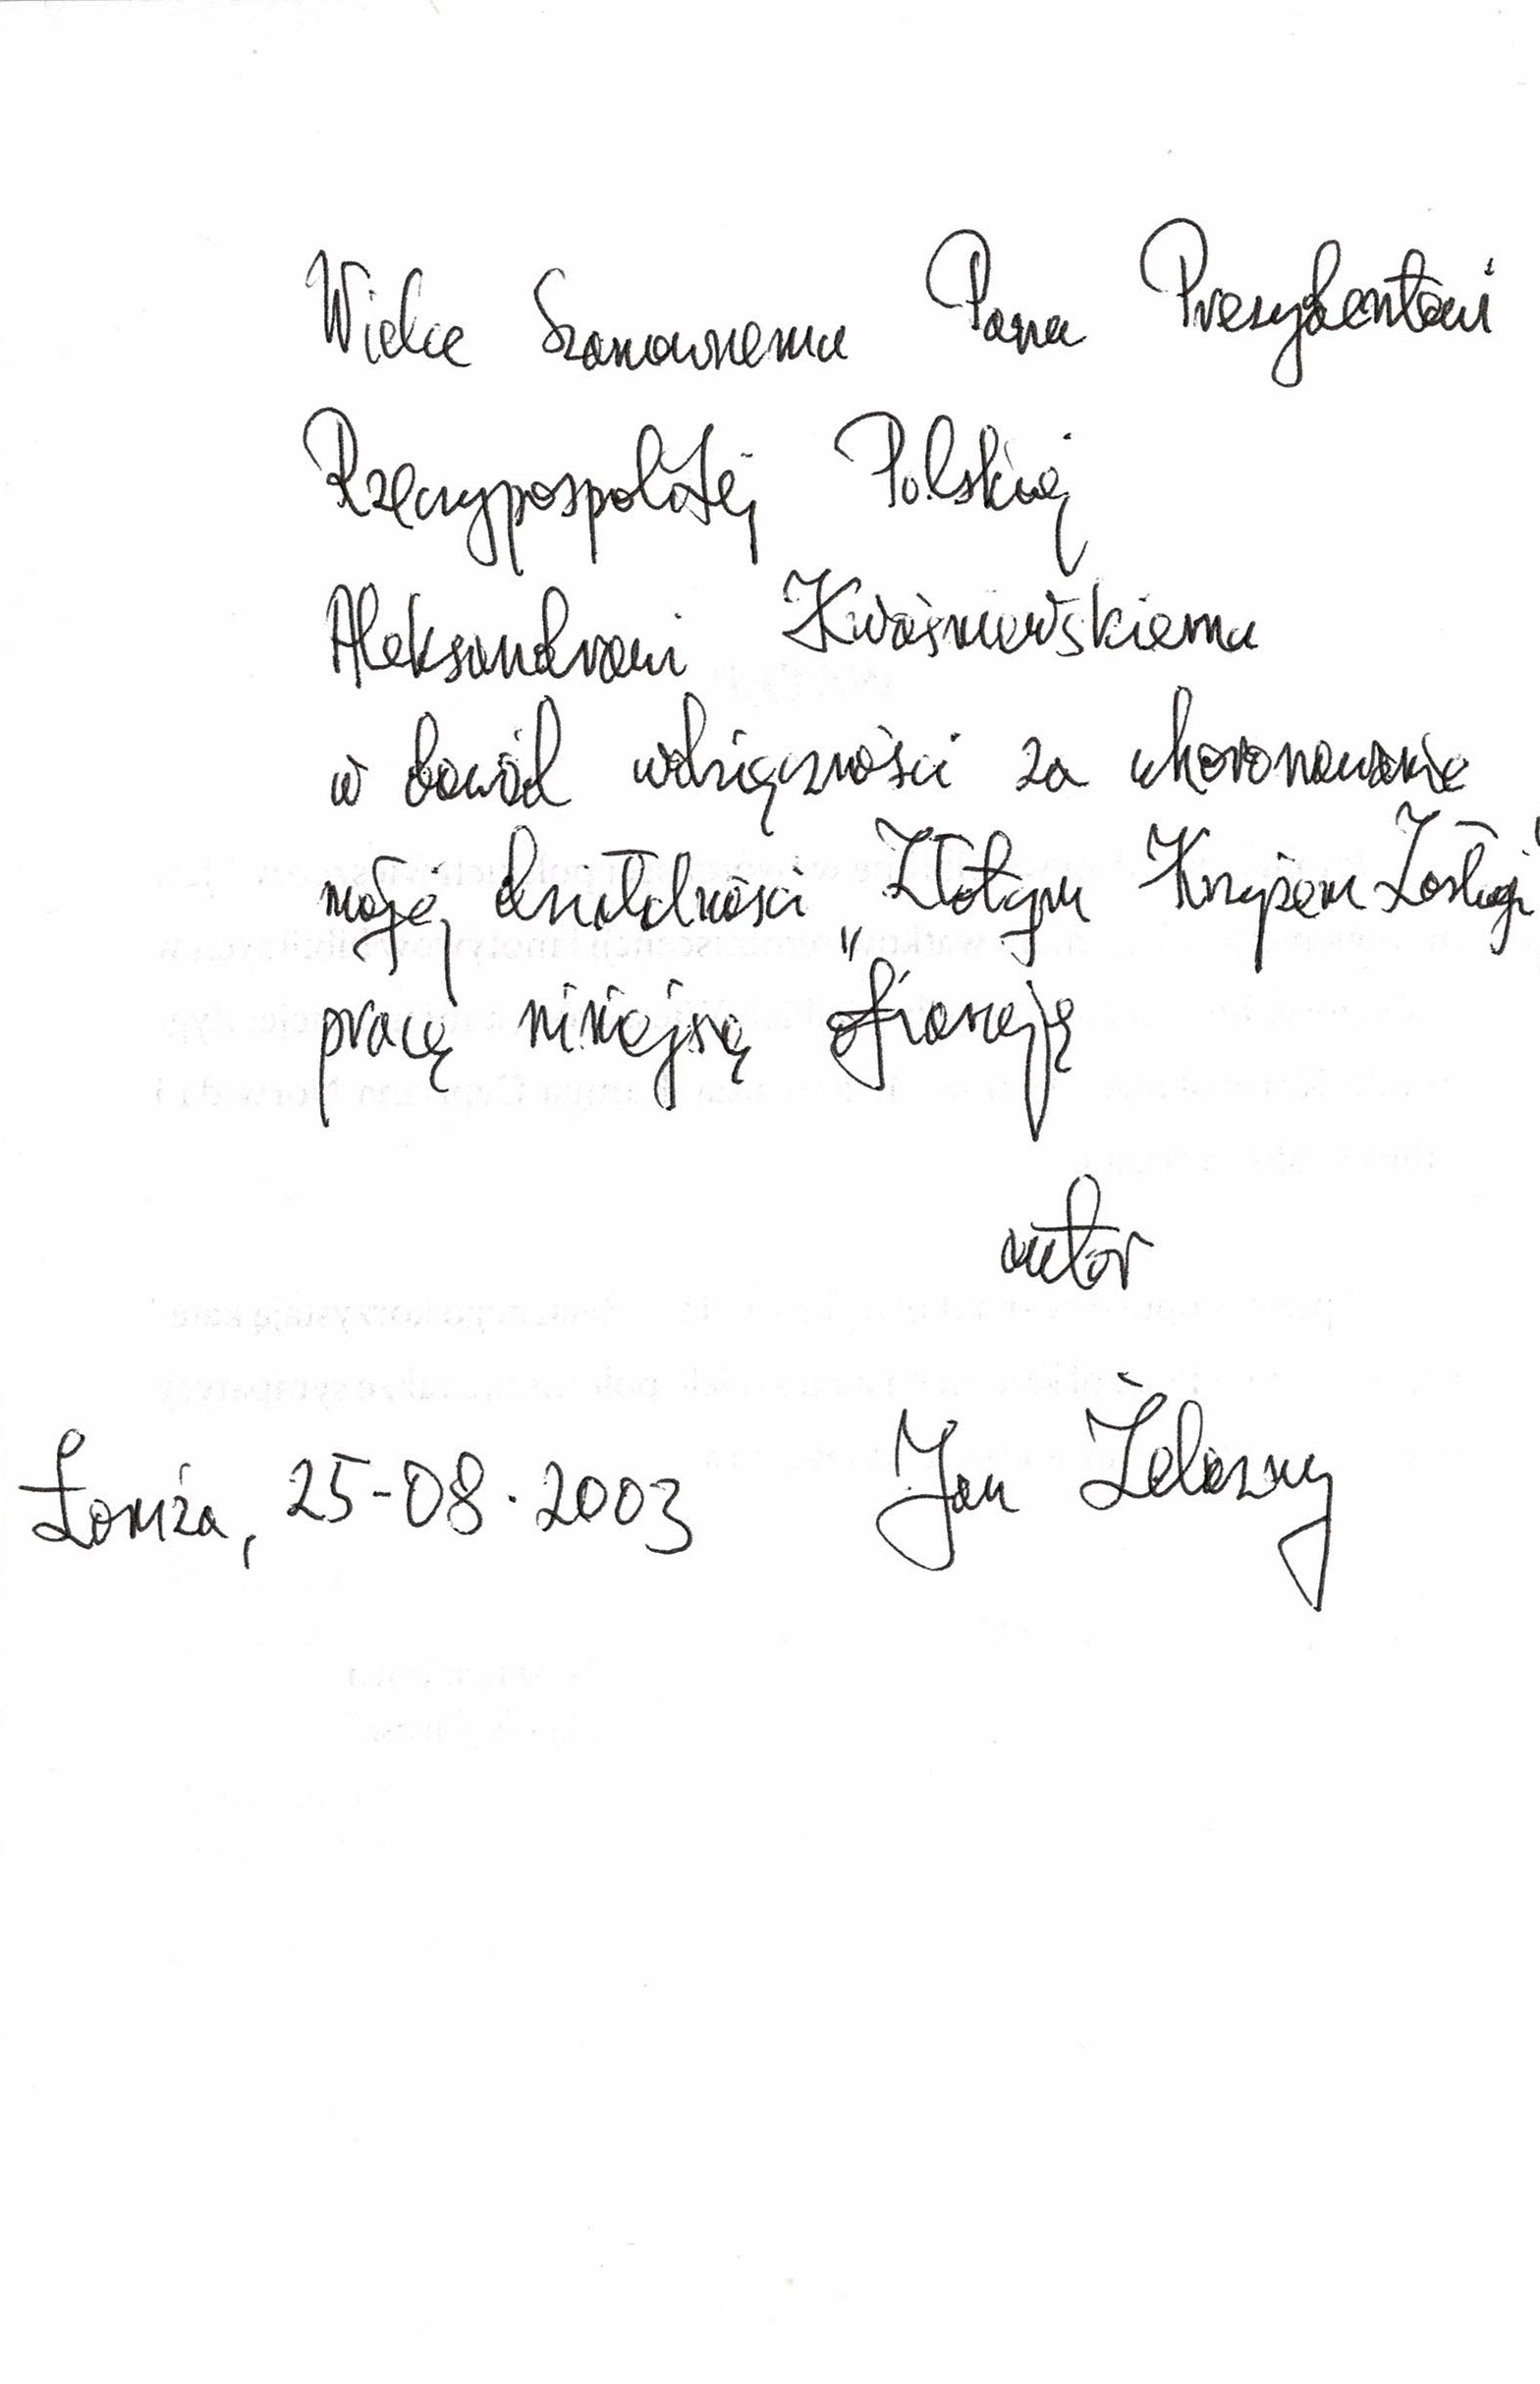 Wielce Szanownemu Panu Prezydentowi
Rzeczypospolitej Polskiej
Aleksandrowi Kwaśniewskiemu
w dowód wdzięczności za ukoronowanie
mojej działalności „Złotym Krzyżem Zasługi”
pracę niniejszą ofiaruję
autor
Łomża, 25-08-2003 Jan Żelazny